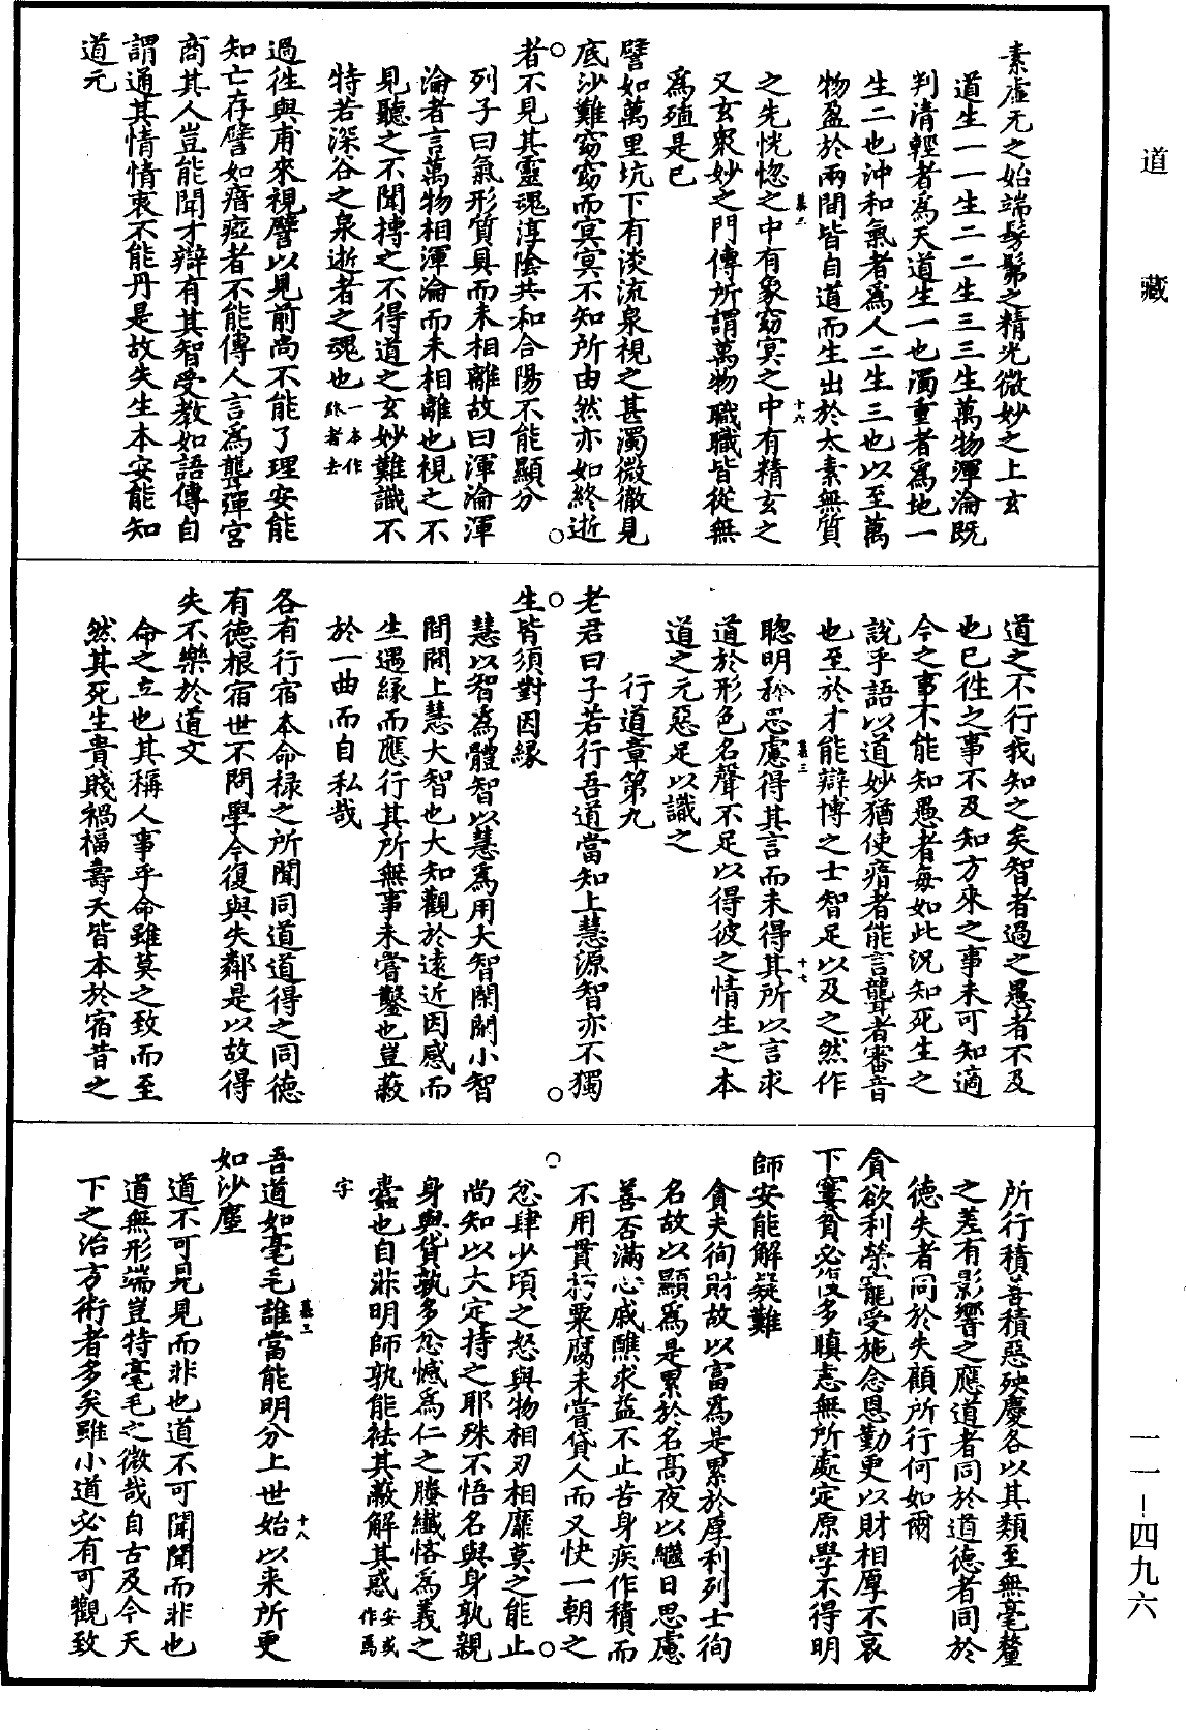 道藏
素虛无之始端髣髴之精光微妙之上玄
道生一一生二二生三三生萬物渾淪既
判清輕者爲天道生一也濁重者爲地一
生二也沖和氣者爲人二生三也以至萬
物盈於兩間皆自道而生出於太素無質
慕三
十六
之先恍惚之中有象窈冥之中有精玄之
又玄衆妙之門傳所謂萬物職職皆從無
爲殖是已
譬如萬里坑下有淡流泉視之甚濁微徹見
底沙難窈窈而冥冥不知所由然亦如終逝
者不見其靈魂淳陰共和合陽不能顯分
列子曰氣形質具而未相離故曰渾淪渾
淪者言萬物相渾淪而未相離也視之不
見聽之不聞搏之不得道之玄妙難識不
特若深谷之泉逝者之魂也一本作終者去
過徃與甫來視譬以見前尚不能了理安能
知亡存譬如瘖瘂者不能傳人言爲聾彈宮
商其人豈能聞才辯有其智受教如語傳自
謂通其情情衷不能丹是故失生本安能知
道元
道之不行我知之矣智者過之愚者不及
也已徃之事不及知方來之事未可知適
今之事不能知愚者每如此況知死生之
說乎語以道妙猶使瘖者能言聾者審音
也至於才能辯博之士智足以及之然作
慕三
十七
聰明矜思慮得其言而未得其所以言求
道於形色名聲不足以得彼之情生之本
道之元惡足以識之
行道章第九
老君曰子若行吾道當知上慧源智亦不獨
生皆須對因緣
慧以智爲體智以慧爲用大智閑閑小智
間間上慧大智也大知觀於遠近因感而
生遇緣而應行其所無事未嘗鑿也豈蔽
於一曲而自私哉
各有行宿本命祿之所聞同道道得之同德
有德根宿世不問學今復與失鄰是以故得
失不樂於道文
命之立也其稱人事乎命雖莫之致而至
然其死生貴賤禍福壽夭皆本於宿昔之
所行積善積惡殃慶各以其類至無毫釐
之差有影響之應道者同於道德者同於
德失者同於失顧所行何如爾
貪欲利榮寵受施念恩勤更以財相厚不哀
下窶貧必復多瞋恚無所處定原學不得明
師安能解疑難
貪夫徇財故以富爲是累於厚利列士徇
名故以顯爲是累於名高夜以繼日思慮
善否滿心戚醮求益不止苦身疾作積而
不用貫朽粟腐未嘗貸人而又快一朝之
忿肆少頃之怒與物相刃相靡莫之能止
尚知以大定持之耶殊不悟名與身孰親
身與貨孰多忿憾爲仁之螣纖悋爲義之
蠹也自非明師孰能袪其蔽解其惑安或作焉
字
慕三
十八
吾道如毫毛誰當能明分上世始以来所更
如沙塵
道不可見見而非也道不可聞聞而非也
道無形端豈特毫毛之微哉自古及今天
下之治方術者多矣雖小道必有可觀致
一一—四九六